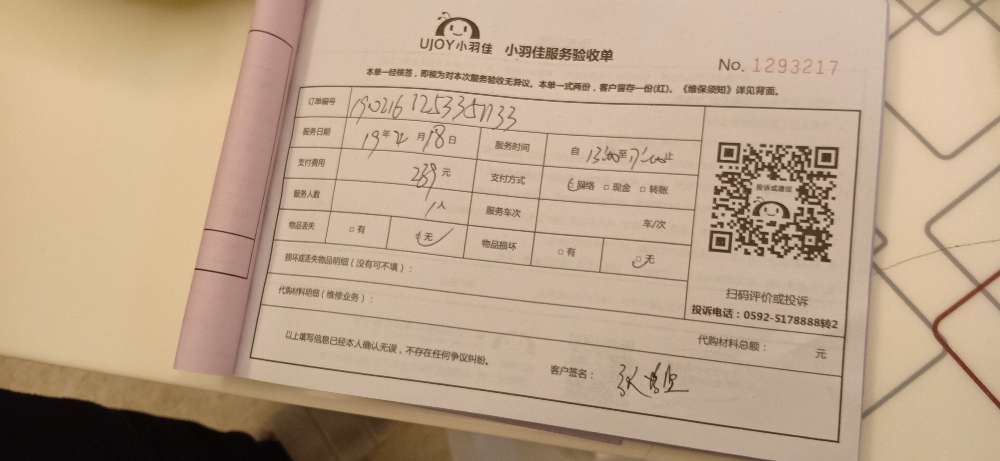 UJOY小羽佳 小羽佳服务验收单
No. 1293217
本单一经核签，即视为对本次服务验收无异议。本单一式两份，客户留存一份(红)。《维保须知》详见背面。
订单编号
服务日期 19年 月18日 服务时间 自13:00至17:00止
支付费用 239元 支付方式 网络 □现金 □转账
服务人数 1人 服务车次 车/次
物品丢失 □有 无 物品损坏 □有 □无
损坏或丢失物品明细（没有可不填）：
代购材料明细（维修业务）：
代购材料总额： 元
以上填写信息已经本人确认无误，不存在任何争议纠纷。
客户签名：
投诉或建议
扫码评价或投诉
投诉电话：0592-5178888转2